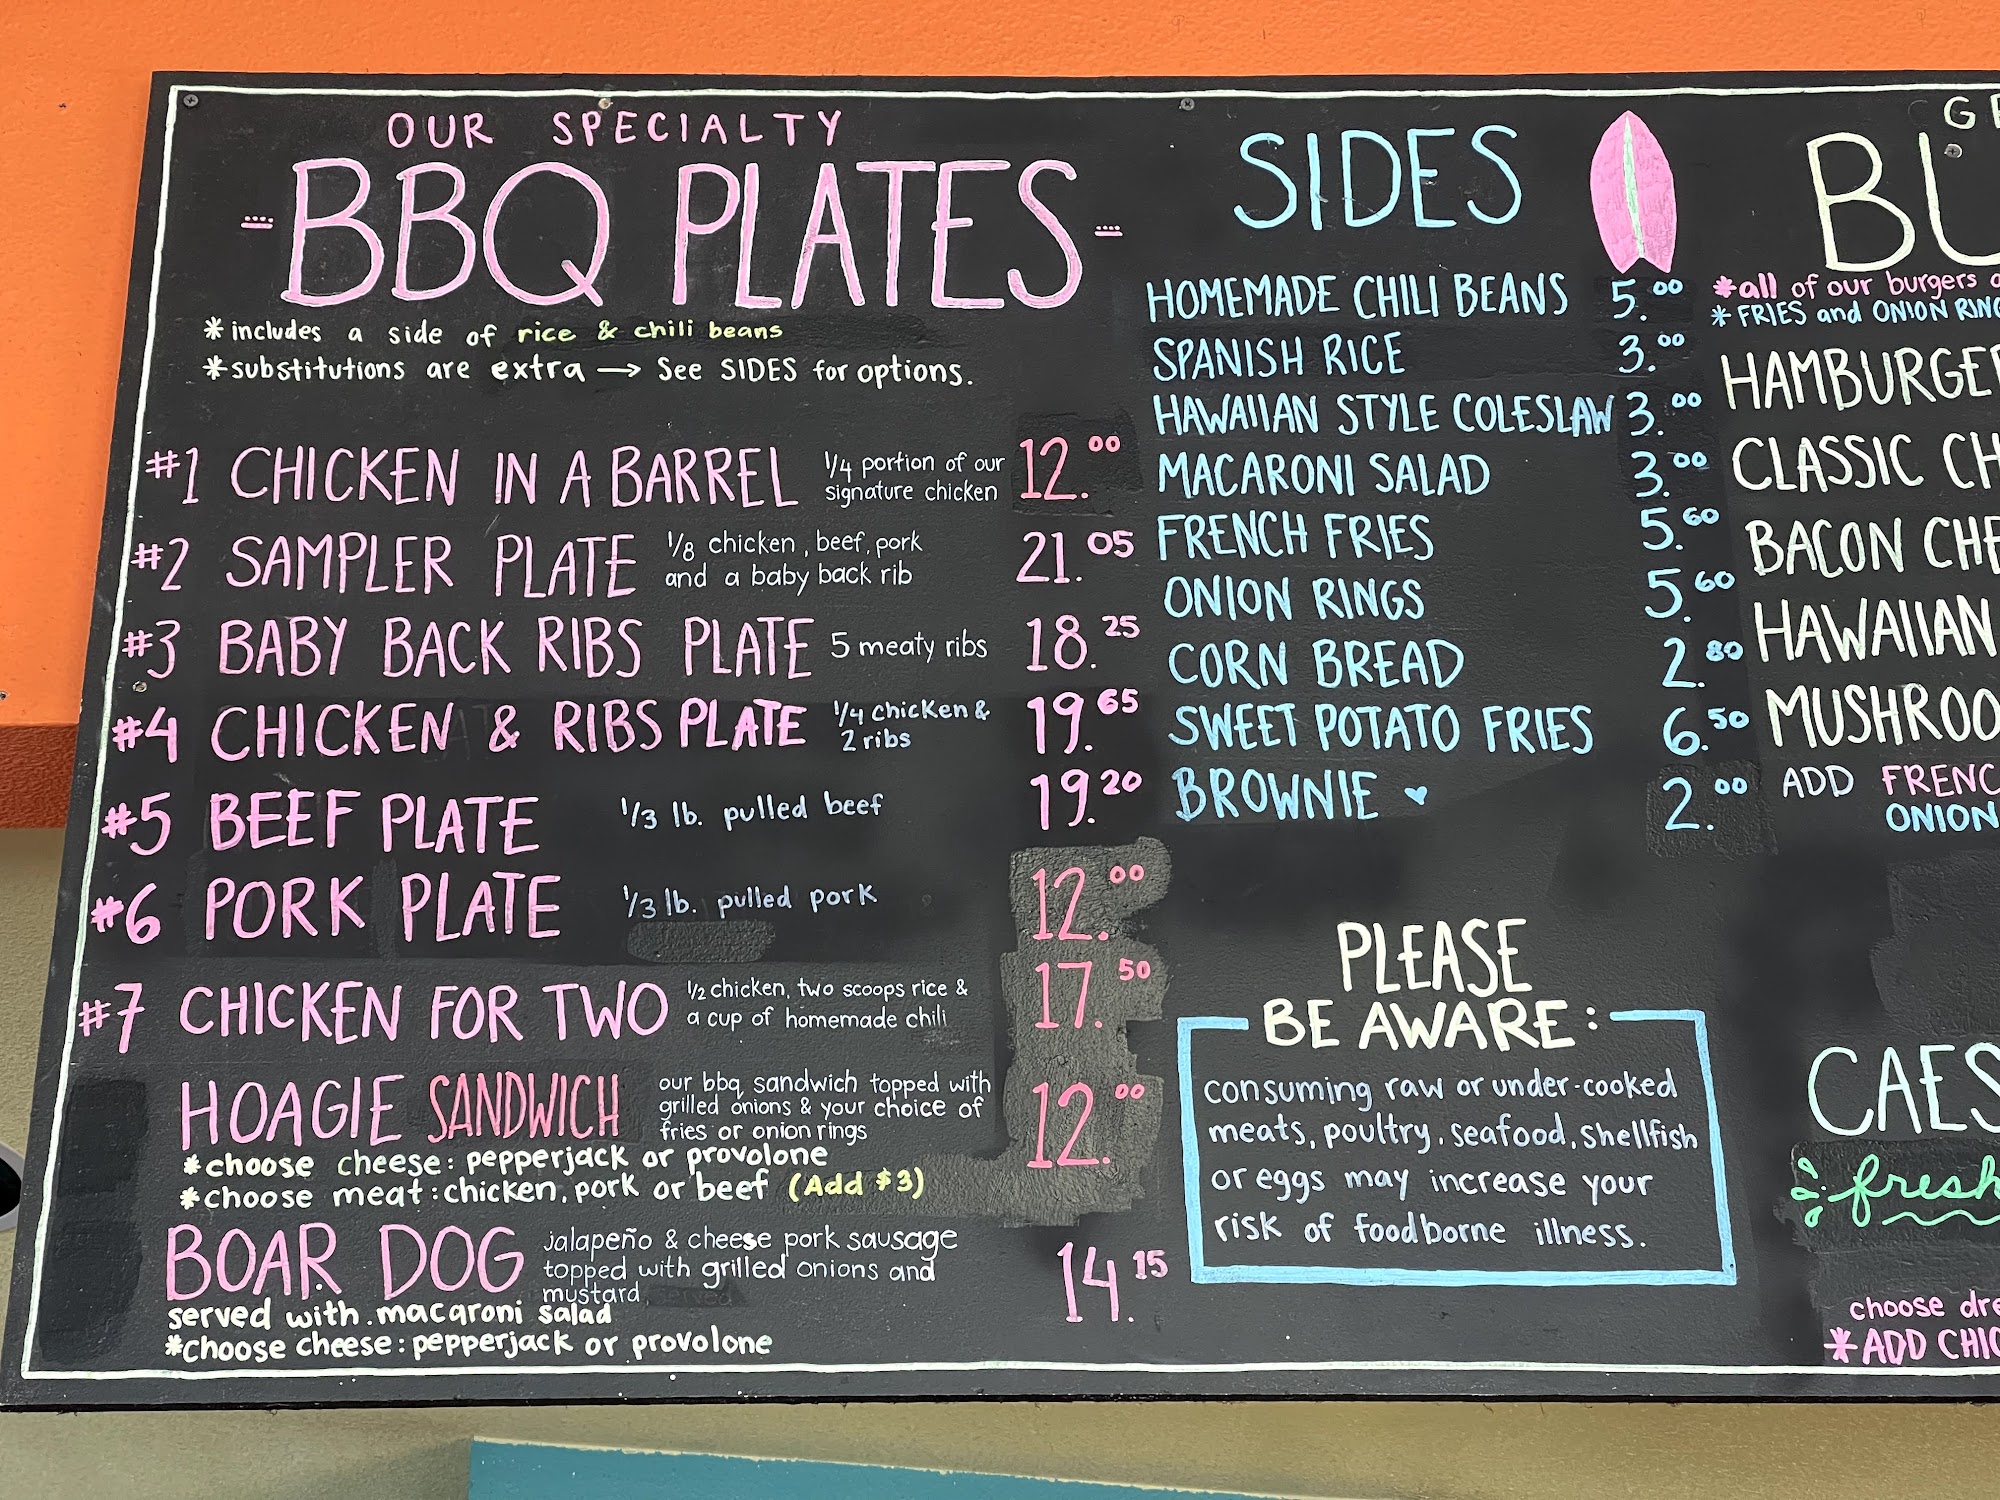 OUR SPECIALTY
BBQ PLATES
*includes a side of rice & chili beans
*substitutions are extra → See SIDES for options.
#1 CHICKEN IN A BARREL 1/4 portion of our signature chicken 12.00
#2 SAMPLER PLATE 1/8 chicken, beef, pork and a baby back rib 21.05
#3 BABY BACK RIBS PLATE 5 meaty ribs 18.25
#4 CHICKEN & RIBS PLATE 1/4 chicken & 2 ribs 19.65
#5 BEEF PLATE 1/3 lb. pulled beef 19.20
#6 PORK PLATE 1/3 lb. pulled pork 12.00
#7 CHICKEN FOR TWO 1/2 chicken, two scoops rice & a cup of homemade chili 17.50
HOAGIE SANDWICH our bbq sandwich topped with grilled onions & your choice of fries or onion rings 12.00
*choose cheese: pepperjack or provolone
*choose meat: chicken, pork or beef (Add $3)
BOAR DOG jalapeño & cheese pork sausage topped with grilled onions and mustard, 14.15
served with macaroni salad
*choose cheese: pepperjack or provolone
SIDES
HOMEMADE CHILI BEANS 5.00
SPANISH RICE 3.00
HAWAIIAN STYLE COLESLAW 3.00
MACARONI SALAD 3.00
FRENCH FRIES 5.60
ONION RINGS 5.60
CORN BREAD 2.80
SWEET POTATO FRIES 6.50
BROWNIE 2.00
PLEASE
BE AWARE:
consuming raw or under-cooked
meats, poultry, seafood, shellfish
or eggs may increase your
risk of foodborne illness.
GE
BU
*all of our burgers
*FRIES and ONION RING
HAMBURGER
CLASSIC CH
BACON CHE
HAWAIIAN
MUSHROO
ADD FRENC
ONION
CAES
fresh
choose dre
*ADD CHIC